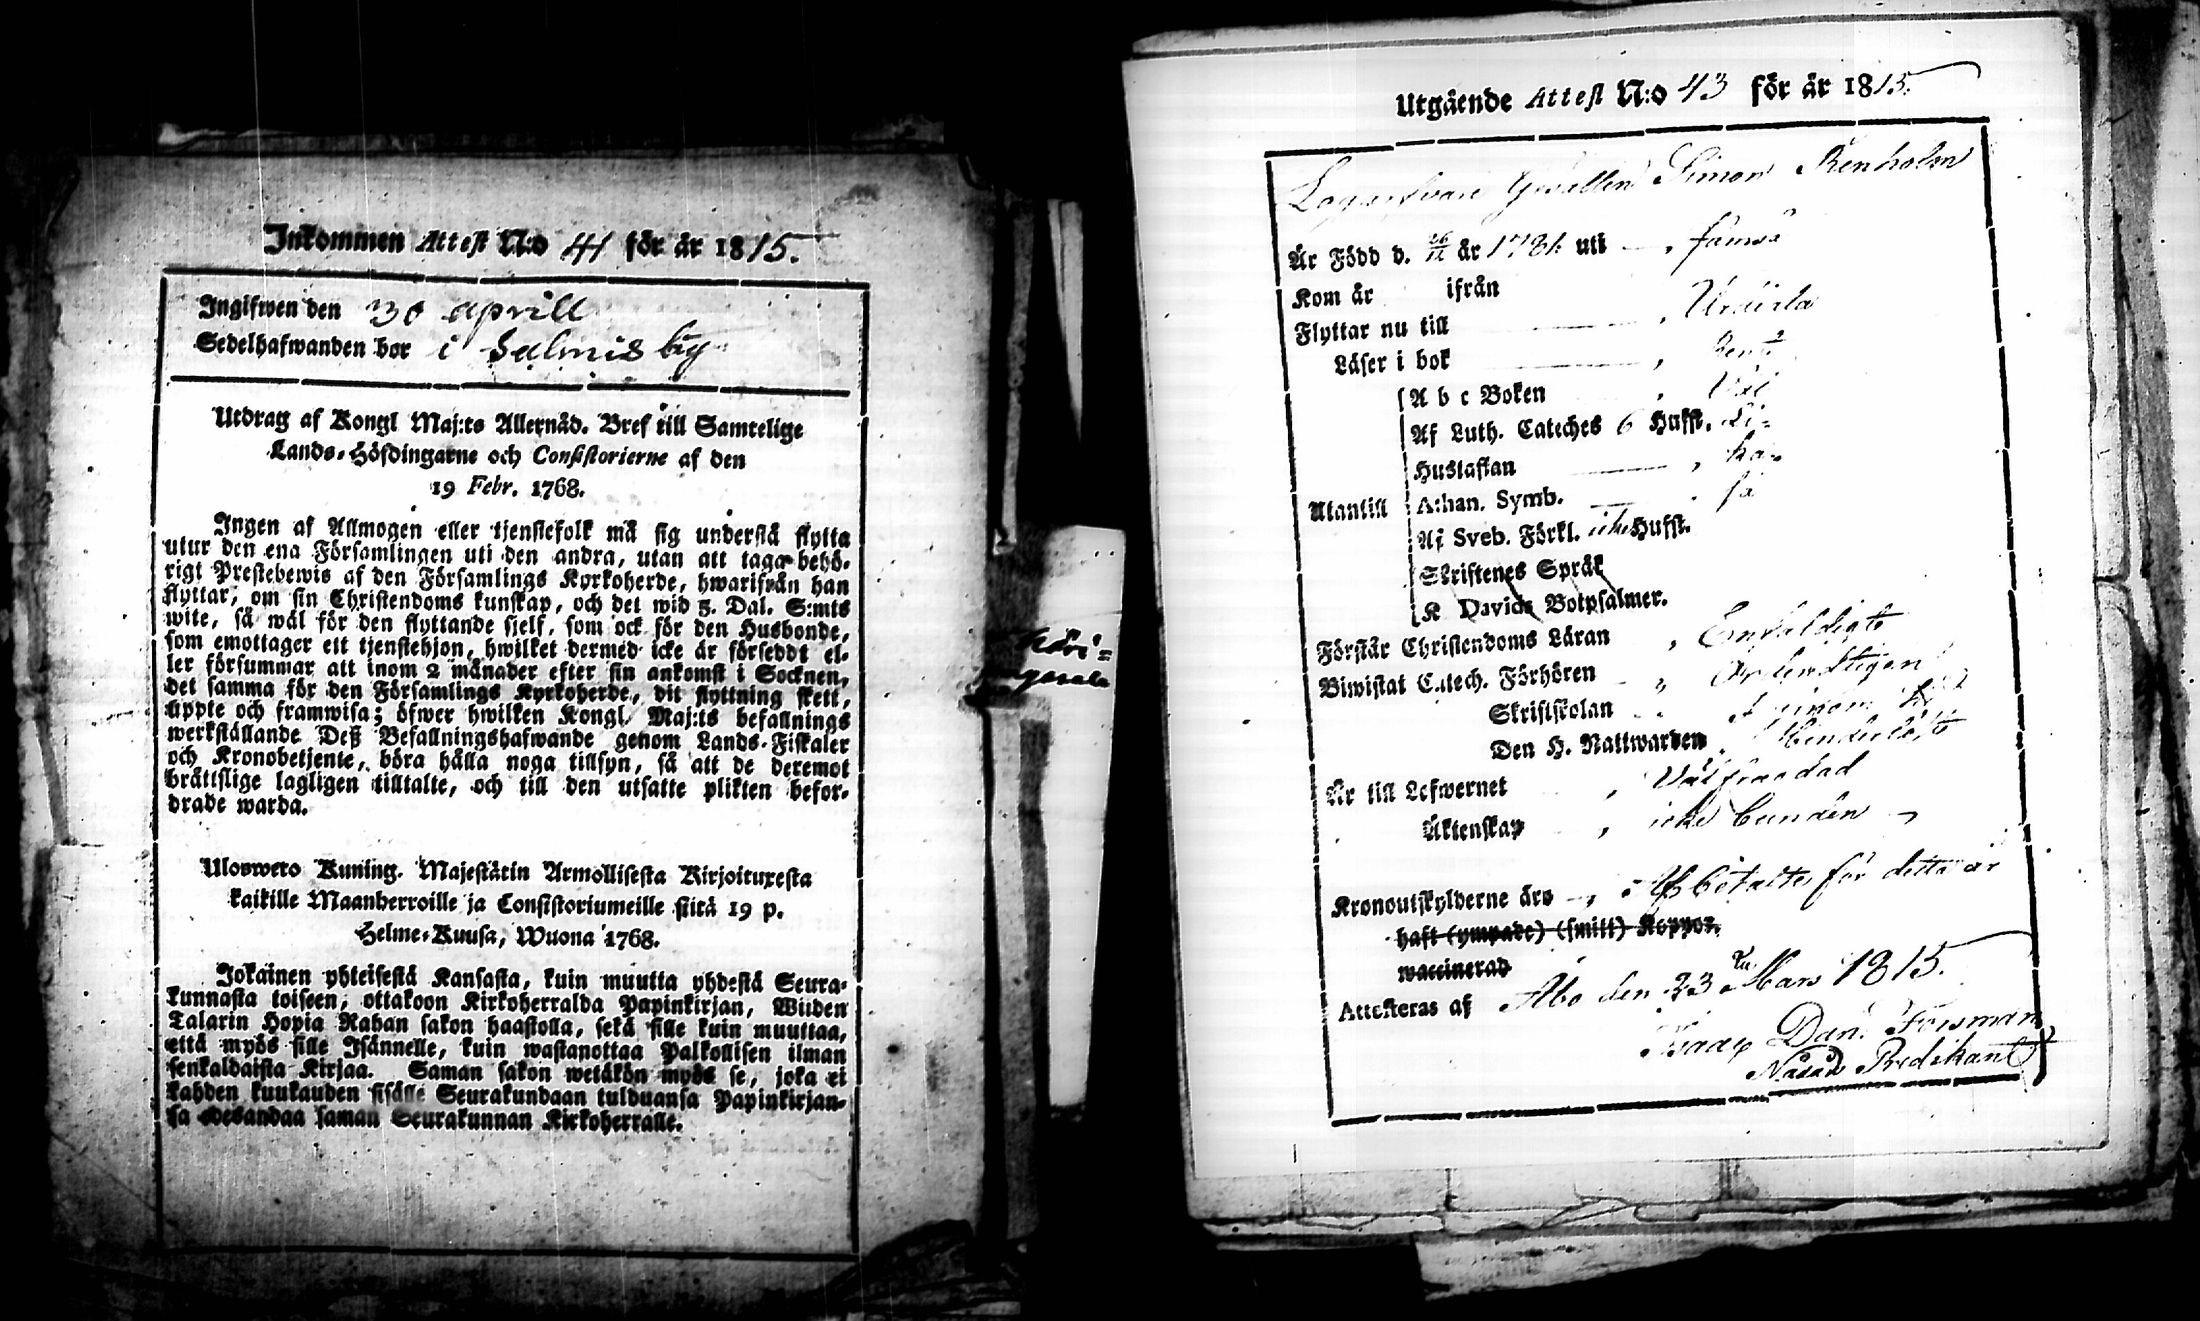 Inkommen Attest N:o 41 för år 1815.
Ingifwen den 30 aprill
Sedelhafwanden bor i Salmis by
Utdrag af Kongl Maj:ts Allernåd. Bref till Samtelige
Lands-Höfdingarne och Consistorierne af den
19 Febr. 1768.
Ingen af Allmogen eller tjenstefolk må sig understå flytta
utur den ena Församlingen uti den andra, utan att taga behö-
rigt Prestebewis af den Församlings Kyrkoherde, hwarifrån han
flyttar, om sin Christendoms kunskap, och det wid 5. Dal. S:mts
wite, så wäl för den flyttande sjelf, som ock för den Husbonde,
som emottager ett tjenstehjon, hwilket dermed icke är försedt el-
ler försummar att inom 2 månader efter sin ankomst i Socknen,
det samma för den Församlings Kyrkoherde, dit flyttning skett,
uppte och framwisa; öfwer hwilken Kongl. Maj:ts befallnings
werkställande Deß Befallningshafwande genom Lands-Fiskaler
och Kronobetjente, böra hålla noga tillsyn, så att de deremot
brättslige lagligen tilltalte, och till den utsatte plikten befor-
drade warda.
Ulosweto Kuning. Majestätin Armollisesta Kirjoituxesta
kaikille Maanherroille ja Consistoriumeille siitä 19 p.
Helme-Kuusa, Wuona 1768.
Jokainen yhteisestä Kansasta, kuin muutta yhdestä Seura-
kunnasta toiseen, ottakoon Kirkoherralda Papinkirjan, Wiiden
Talarin Hopia Rahan sakon haastolla, sekä sille kuin muuttaa,
että myös sille Isännelle, kuin wastanottaa Palkollisen ilman
senkaldaista Kirjaa. Saman sakon wetäkön myös se, joka ei
kahden kuukauden sisälle Seurakundaan tulduansa Papinkirjan-
sa edesandaa saman Seurakunnan Kirkoherralle.
Utgående Attest N:o 43 för år 1815.
Gesällen Simon Renholm
Är Född d. 26/12 år 1781 uti
Kom år ifrån
Flyttar nu till Urdiala
Läser i bok
A b c Boken Väl
Af Luth. Cateches 6 Hufst. Li-
Hustaflan ka-
Utantill Athan. Symb. så
Af Sveb. Förkl. icke Hufst.
Skriftenes Språk
K Davids Botpsalmer.
Förstår Christendoms Läran Enfaldigt
Biwistat Catech. Förhören Ordentligen
Skriftskolan
Den H. Nattwarden
Är till Lefwernet Välfrägdad
Äktenskap icke bunden
Kronoutskylderne äro Afbetalte för detta år
haft (ympade) (smitt) Koppor.
waccinerad
Attesteras af Åbo den 23 Mars 1815.
Isaac Dan. Forsman
Predikant